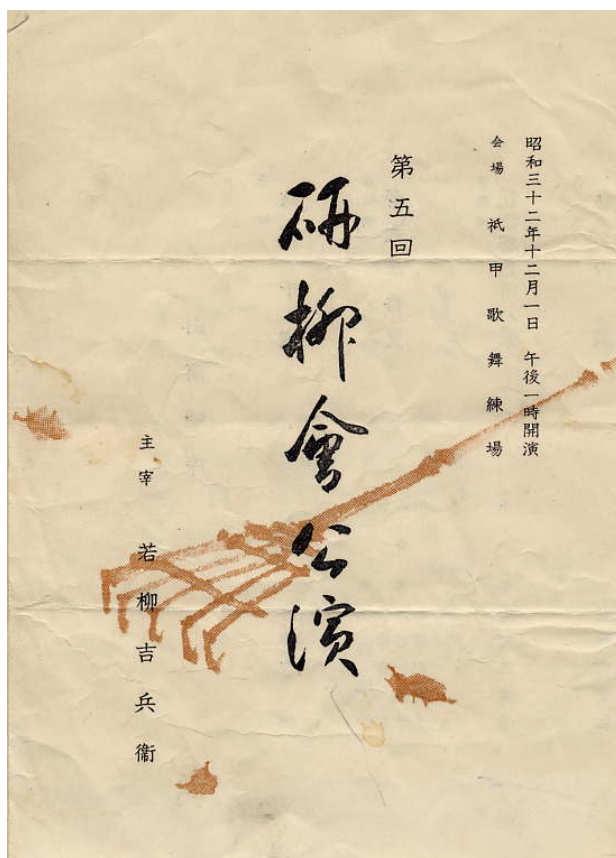 昭和三十二年十二月一日　午後一時開演
会場　祇甲歌舞練場
第五回
研柳會公演
主宰　若柳吉兵衞